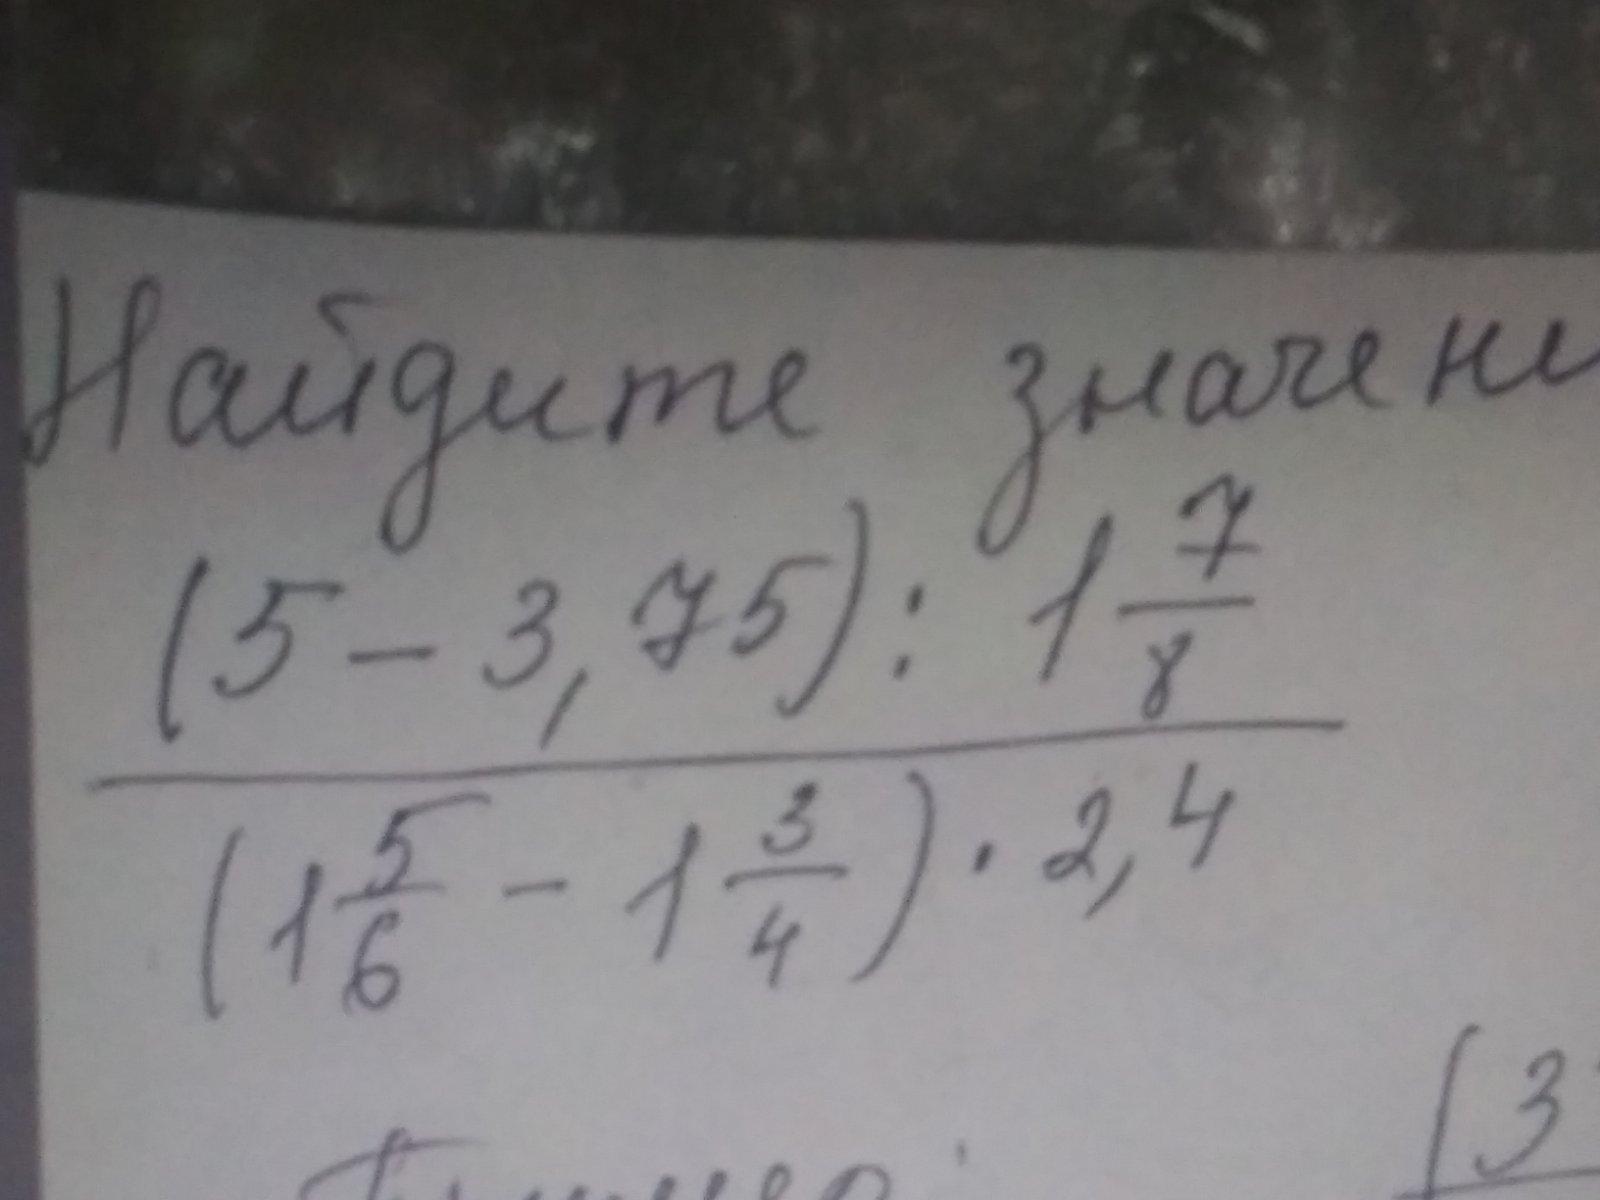 Найдите значени
(5 - 3,75) : 1 7/8
(1 5/6 - 1 3/4) · 2,4
(3